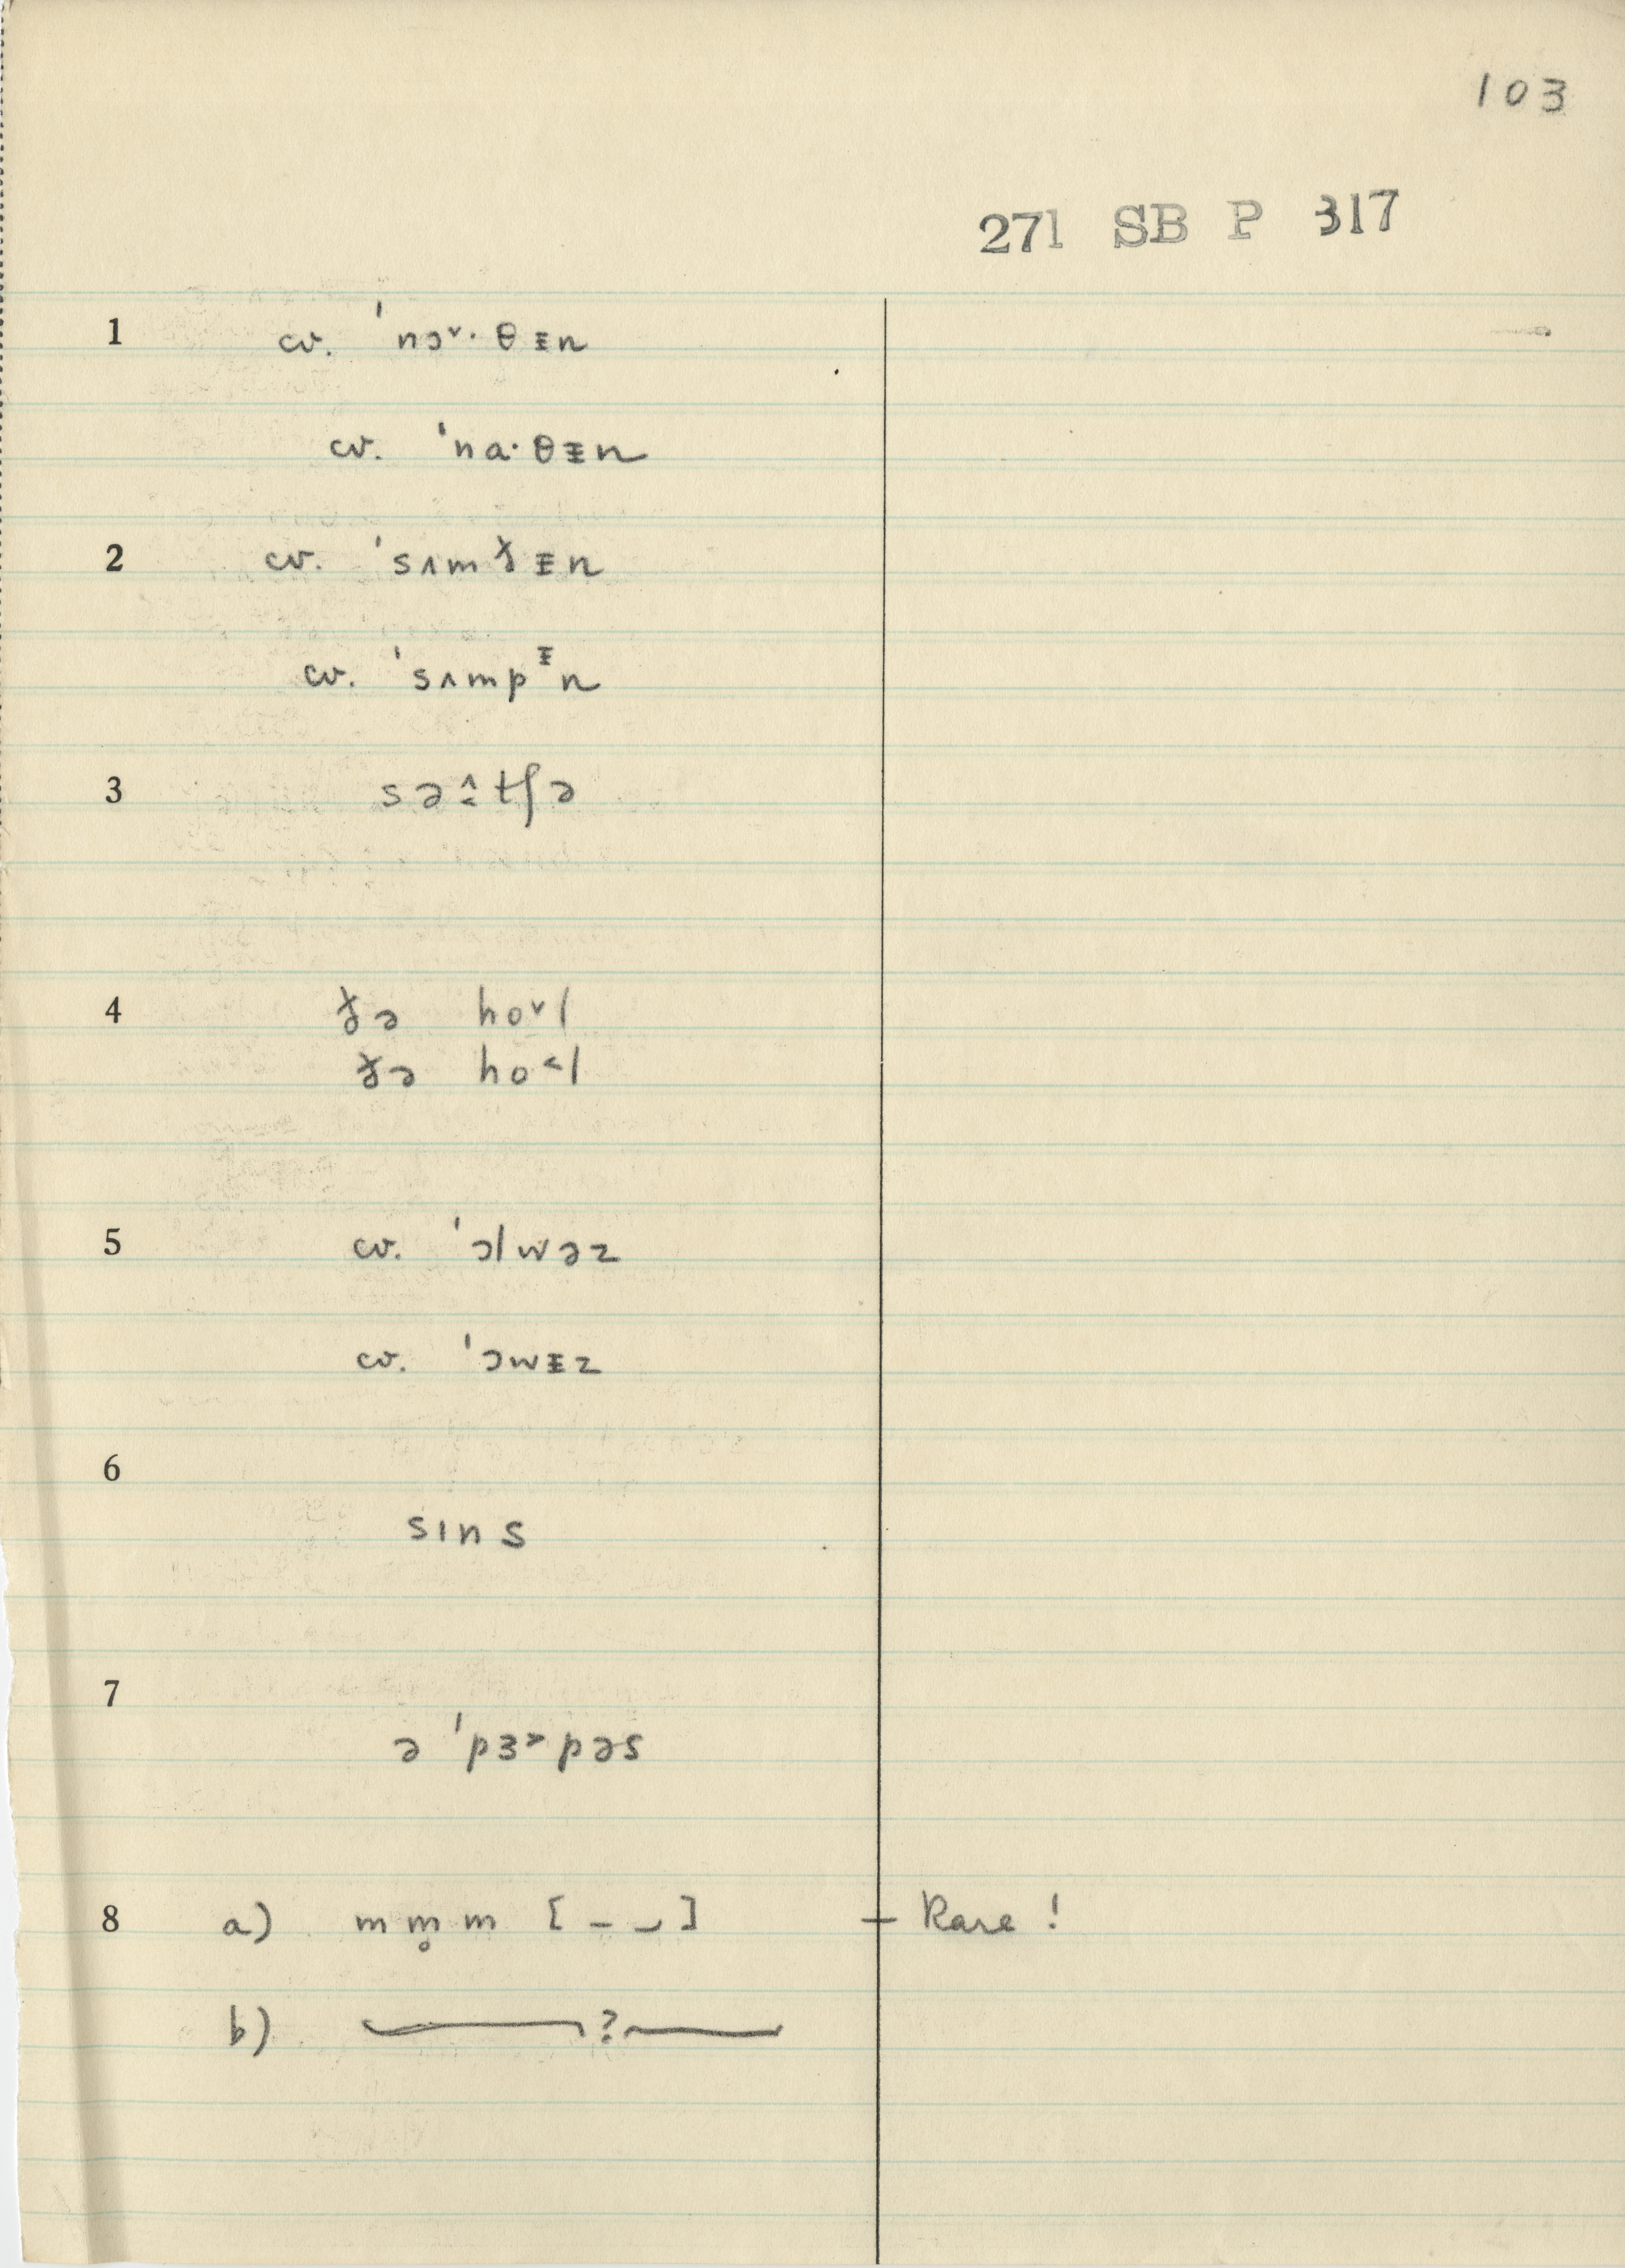 103
271 SB P 317
1 cv. ˈnɔ˅·θᵻn
cv. ˈna·θᵻn
2 cv. ˈsʌmɵᵻn
cv. ˈsʌmpᵻn
3 səʌ̂tʃə
4 ðə ho˅l
ðə ho˂l
5 cv. ˈɔlwəz
cv. ˈɔwᵻz
6
sɪns
7
ə ˈpɜ˃pəs
8 a) m m̥ m [ – ⌣ ] – Rare !
b) ——— ? ———